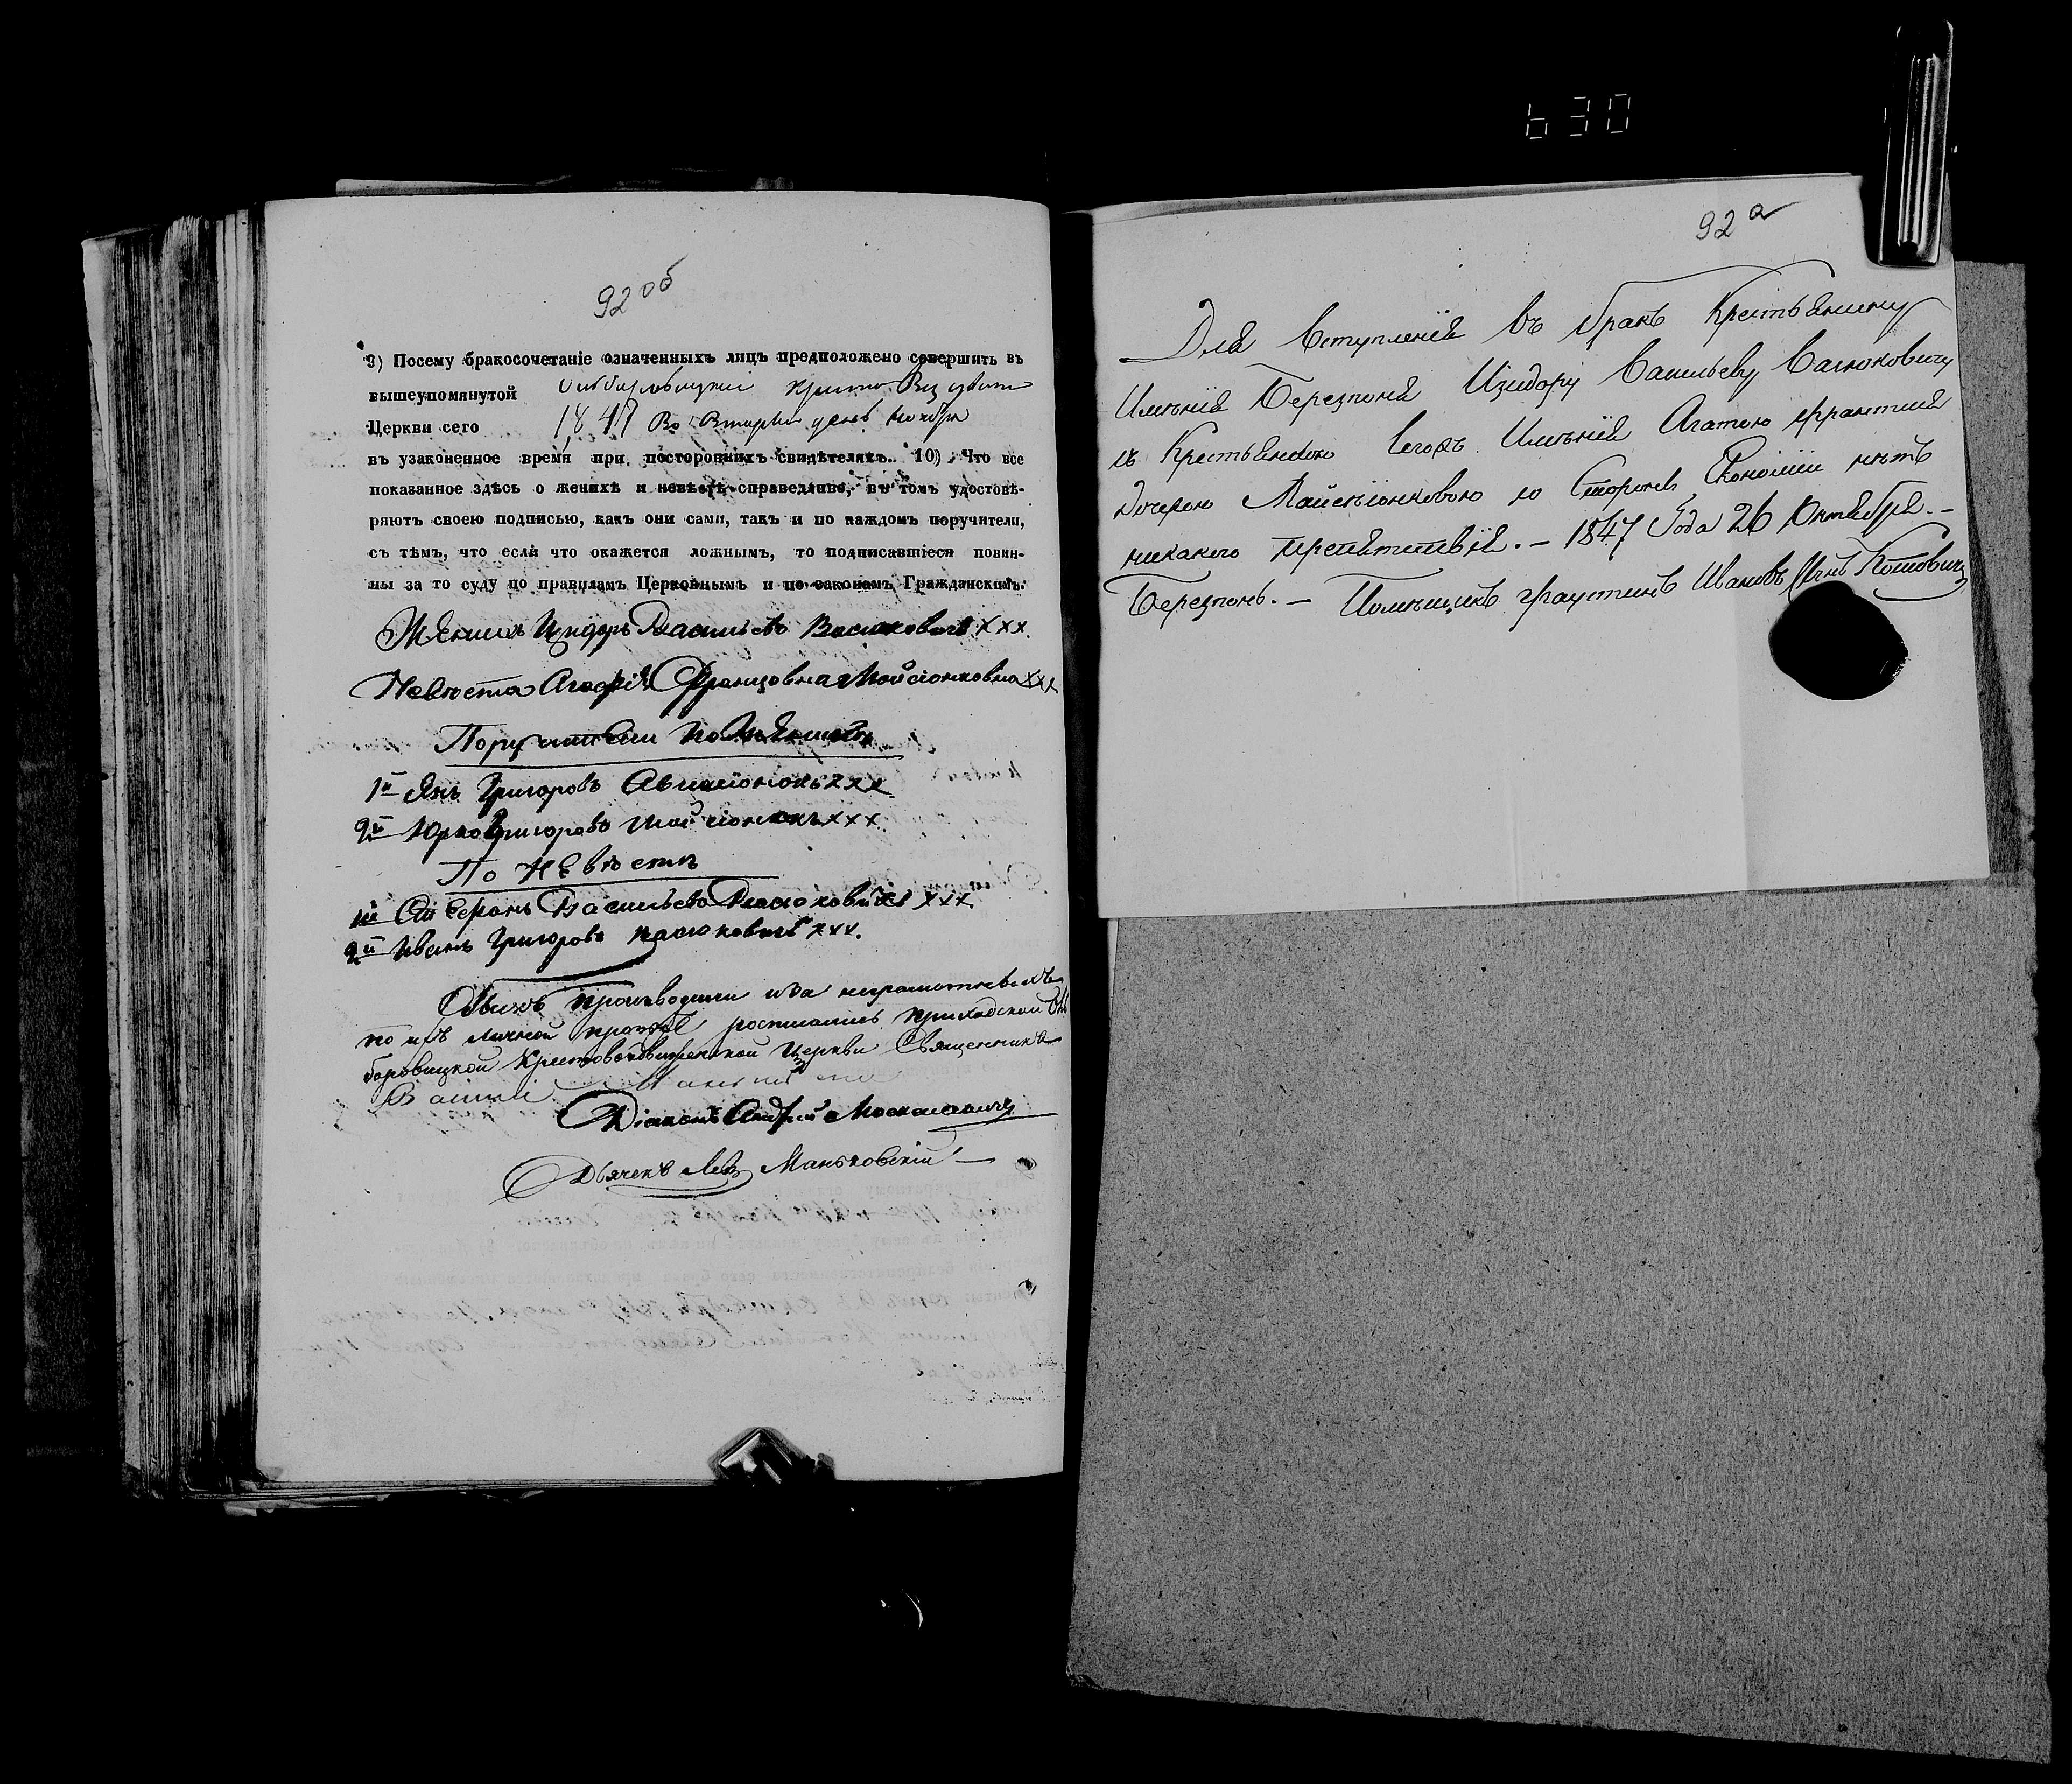 630
92 об
9) Посему бракосочетаніе означенныхъ лицъ предположено совершить въ
вышеупомянутой
Церкви сего 1847 Во Вторый день Ноября
въ узаконенное время при постороннихъ свидѣтеляхъ. 10) Что все
показанное здѣсь о женихѣ и невѣстѣ справедливо, въ томъ удостовѣ-
ряютъ своею подписью, какъ они сами, такъ и по каждомъ поручители,
съ тѣмъ, что если что окажется ложнымъ, то подписавшіеся повин-
ны за то суду по правиламъ Церковнымъ и по законамъ Гражданскимъ.
Женихъ Изидоръ Васильевъ Васюковичъ ххх
Невѣста Агафія Францовна Мойсіонковна ххх
Поручители по Женихѣ
1й Янъ Григоровъ ххх
2й Юрко Григоровъ Мойсіонокъ ххх
По Невѣстѣ
1й Васильевъ Васюковичъ ххх
2й Иванъ Григоровъ Васюковичъ ххх.
Обыскъ производили и за неграмотныхъ
по ихъ личной прозбѣ росписались приходской
Крестовоздвиженской Церкви Священникъ
Діаконъ Андрей
Дьячекъ Левъ Маньковскій
92 а
Для вступленія въ бракъ Крестьянину
Имѣнія Березпоня Изидору Васильеву Васюковичу
съ Крестьянкою Имѣнія Агатою Францишка
дочерью Мойсіонковою со Стороны Економіи нѣтъ
никакого препятствія. — 1847 Года 26 Октября. —
Березпонь. — Помѣщикъ Фаустинъ Ивановъ Сынъ